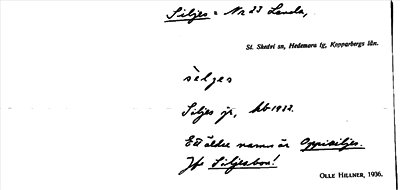 Siljes = Nr 23 Landa,
St. Skedvi sn, Hedemora tg, Kopparbergs län.
sèlges
Siljes jr, kb 1933.
Ett äldre namn är Oppisiljes.
Jfr Siljesbon!
OLLE HILLNER, 1936.